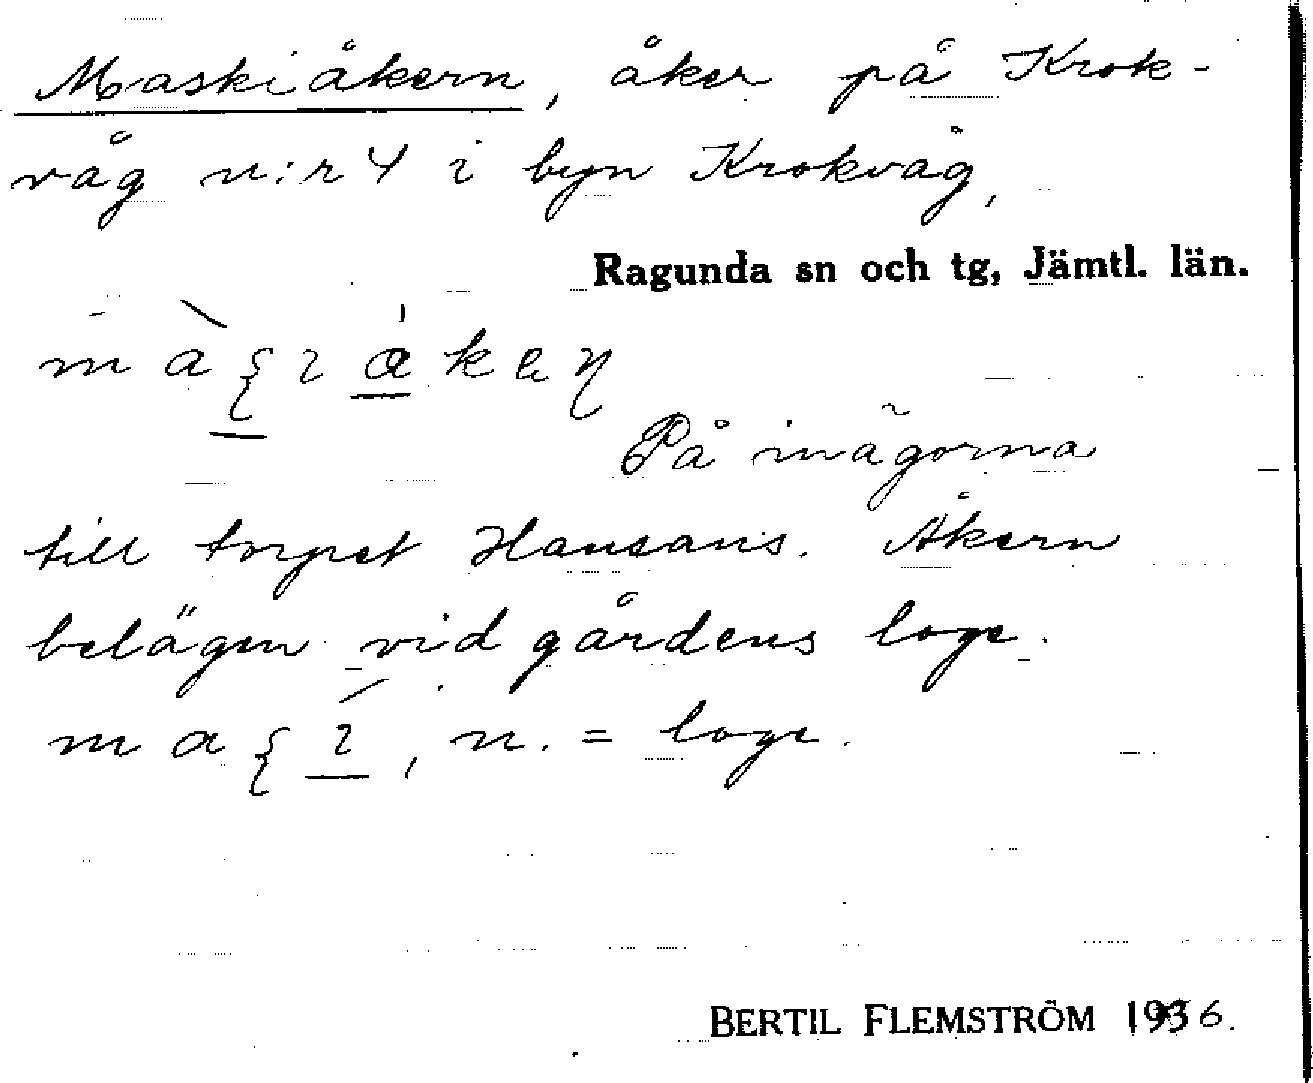 Maskiåkern, åker på Krok-
våg n:r 4 i byn Krokvåg,
Ragunda sn och tg, Jämtl. län.
På inägorna
till torpet Hansans. Åkern
belägen vid gårdens loge.
n. = loge.
BERTIL FLEMSTRÖM 1936.